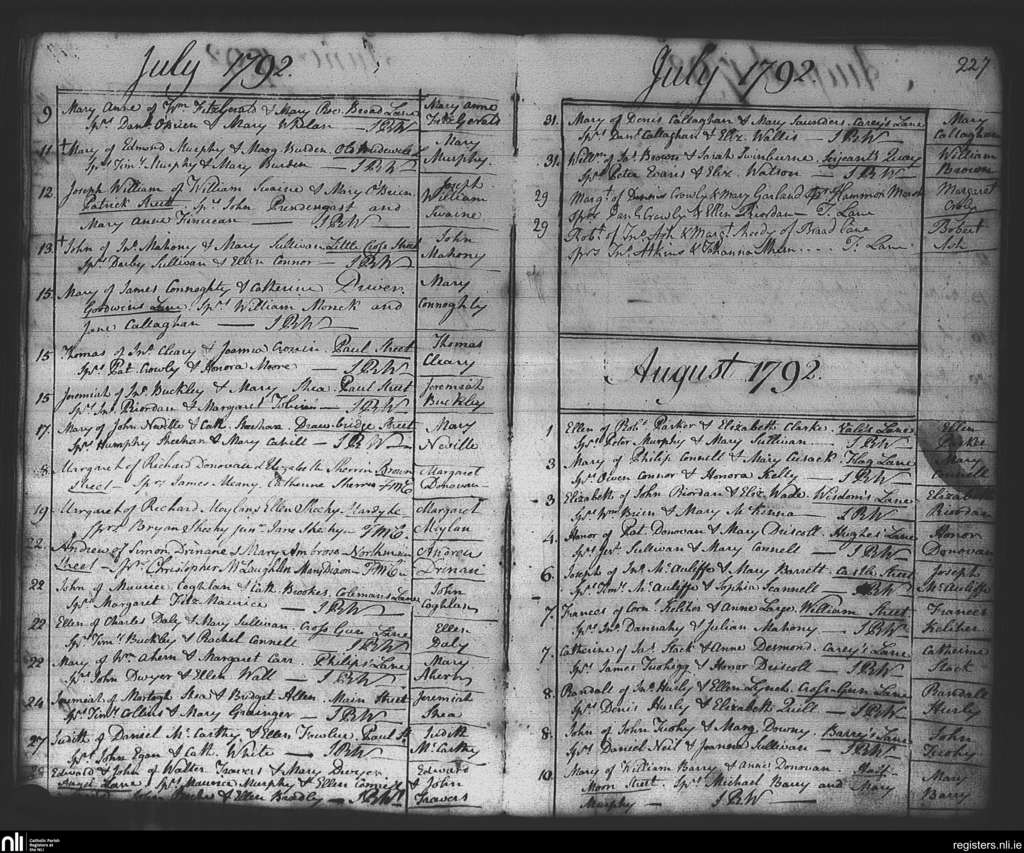 July 1792.
9 Mary Anne of Wm FitzGerald & Mary Roe. Broad Lane
Sprs Danl OBrien & Mary Whelan — JBW
Mary Anne
FitzGerald
11 Mary of Edmond Murphy & Marg Burden. Old
Sprs Timy Murphy & Mary Burden — JBW
Mary
Murphy.
12 Joseph William of William Swaine & Mary OBrien
Patrick Street. Sprs John Prendergast and
Mary Anne Finucan — JBW
Joseph
William
Swaine
13 John of Jno Mahony & Mary Sullivan. Little Cross Street
Sprs Darby Sullivan & Ellen Connor — JBW
John
Mahony
15 Mary of James Connoghty & Catherine Dwyer.
Goodwins Lane. Sprs William Monck and
Jane Callaghan — JBW
Mary
Connoghty
15 Thomas of Jno Cleary & Joanna Cronin. Paul Street
Sprs Pat Crowly & Honora Moore — JBW
Thomas
Cleary
15 Jeremiah of Jno Buckley & Mary Shea. Paul Street
Sprs Jno Riordan & Margaret — JBW
Jeremiah
Buckley
17. Mary of John Neville & Cath. Sheehan. Draw-bridge Street
Sprs Humphy Sheehan & Mary Cahill — JBW
Mary
Neville
8 Margaret of Richard Donovan & Elizabeth Sherrin Brown
Street — Sprs James Meany, Catherine Sherrin FME
Margaret
Donovan
19 Margaret of Richard Moylan & Ellen Shechy. Hardyk
Sprs Bryan Shechy junr. Jane Shechy. FME.
Margaret
Moylan
22. Andrew of Simon Drinane & Mary Ambrose — Northmain
Street — Sprs Christopher McLoughlin Mary Dixon — FME —
Andrew
Drinan
22 John of Maurice Coghlan & Cath Brookes. Coleman's Lane
Sprs Margaret FitzMaurice — JBW
John
Coghlan
22 Ellen of Charles Daly & Mary Sullivan. Cross Gun Lane
Sprs Timy Buckley & Rachel Connell — JBW
Ellen
Daly
22 Mary of Wm Ahern & Margaret Carr. Philips's Lane
Sprs John Dwyer & Ellen Walt — JBW
Mary
Ahern
24 Jeremiah of Mortogh Shea & Bridget Allen. Main Street
Sprs Timy Collins & Mary Grainger — JBW
Jeremiah
Shea
27 Judith of Daniel McCarthy & Ellen Fowler. Paul St
Sprs John Egan & Cath. White — JBW
Judith
McCarthy
Edward & John of Walter Travers & Mary Dwyer.
Angel Lane. Sprs Maurice Murphy & Ellen Connell &
& Ellen Bradly — JBW
Edward
& John
Travers
July 1792
227
31. Mary of Denis Callaghan & Mary Saunders. Carey's Lane
Sprs Danl Callaghan & Eliz Wallis — JBW
Mary
Callaghan
31. Willm of Jas Browne & Sarah Swinburne. Serjeant's Quay
Sprs Peter Evans & Eliz. Watson — JBW
William
Browne
29 Margt of Dennis Crowly & Mary Garland Hammon Marsh
Sprs Danl Crowly & Ellen Riordan — T. Lane
Margaret
Crowly
29 Robt of Jno Ash & Margt Sheedy of Broad Lane
Sprs Jno Atkins & Johanna — T. Lane
Robert
Ash
August 1792.
1 Ellen of Robt Parker & Elizabeth Clarke. Lane
Sprs Peter Murphy & Mary Sullivan — JBW
Ellen
Parker
3 Mary of Philip Connell & Mary Cusack. Flag Lane
Sprs Owen Connor & Honora Kelly — JBW
Mary
3 Elizabeth of John Riordan & Eliz. Wade. Wisdom's Lane
Sprs Wm Brien & Mary McKenna — JBW
Elizabeth
Riordan
4. Honor of Pat. Donovan & Mary Driscoll. Hughes' Lane
Sprs Jery Sullivan & Mary Connell — JBW
Honor
Donovan
6. Joseph of Jno McAuliffe & Mary Barrett. Castle Street
Sprs Thos McAuliffe & Sophia Scannell — JBW
Joseph
McAuliffe
7. Frances of Corns Keliher & Anne Large. William Street
Sprs Jno Dannahy & Julian Mahony — JBW
Frances
Keliher
7. Catherine of Jas Stack & Anne Desmond. Carey's Lane
Sprs James Twohigg & Honor Driscoll — JBW
Catherine
Stack
8. Randall of Jas Hurly & Ellen Lynch. Cross-Gun Lane
Sprs Denis Hurly & Elizabeth Quilt — JBW
Randall
Hurly
8. John of John Twohy & Marg. Downy. Barry's Lane
Sprs Daniel Neil & Joanna Sullivan — JBW
John
Twohy
10. Mary of William Barry & Anne Donovan. Half-
Moon Street. Sprs Michael Barry and Mary
Murphy — JBW
Mary
Barry
nli Catholic Parish
Registers at
the NLI
registers.nli.ie